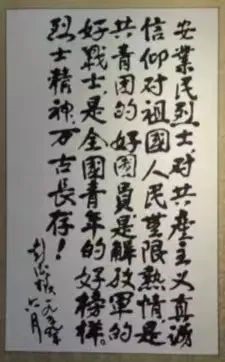 安業民烈士对共產主义真誠
信仰对祖國人民無限熱情是
共青团的好團員是解放軍的
好戰士,是全國青年的好榜樣。
烈士精神,万古長存!
彭德懷 一九五
六月